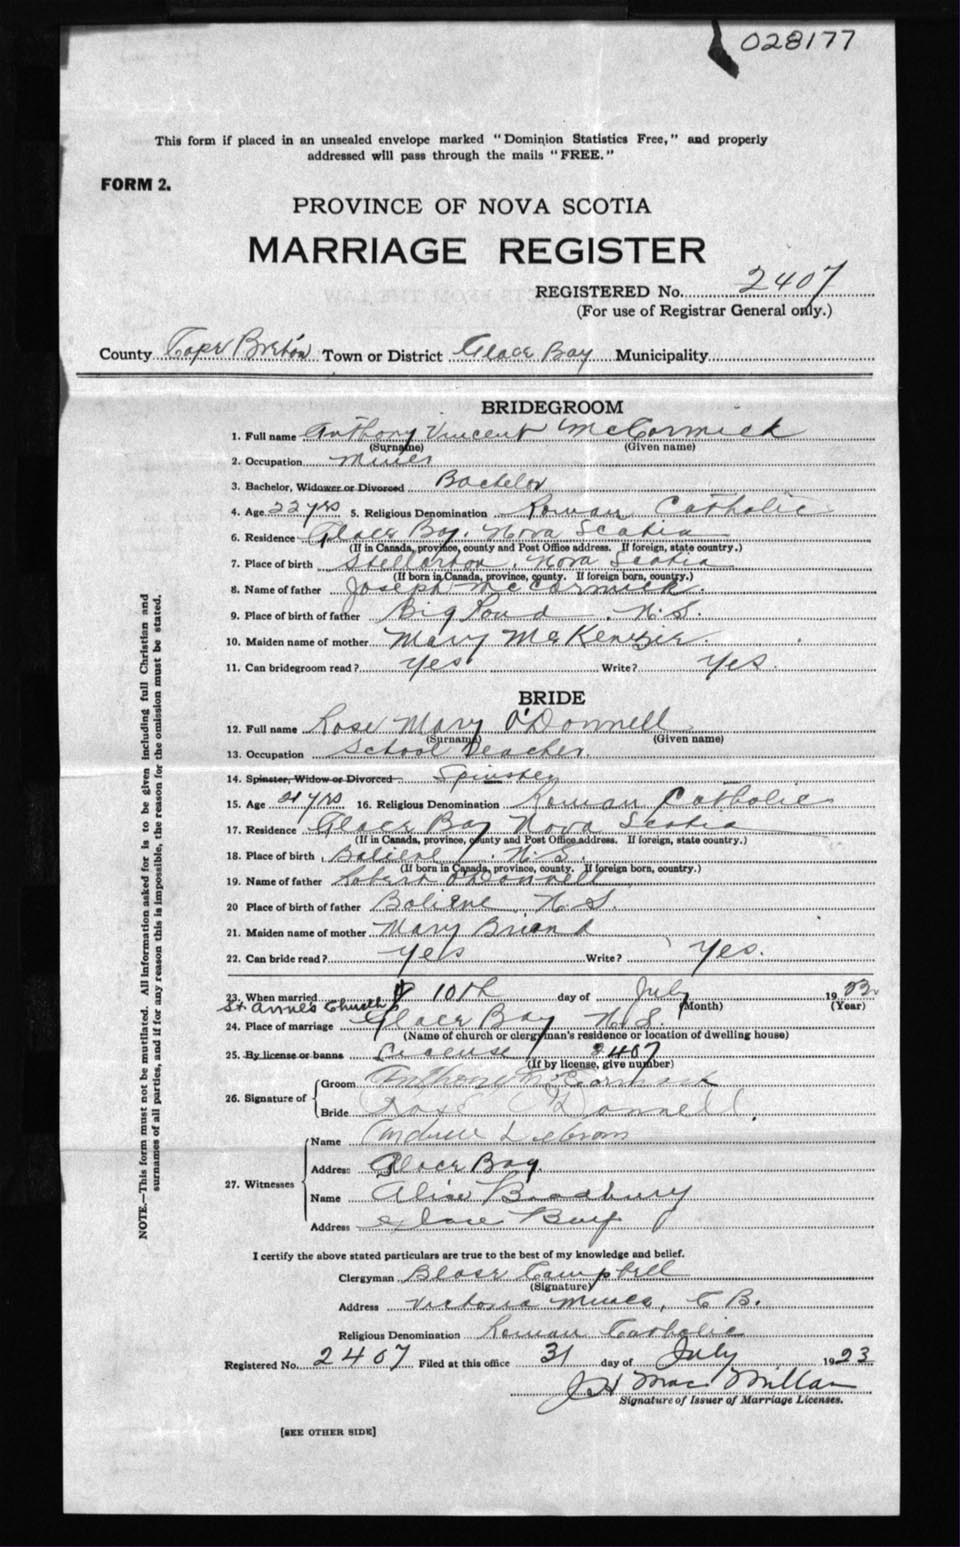 028177
This form if placed in an unsealed envelope marked "Dominion Statistics Free," and properly
addressed will pass through the mails "FREE."
FORM 2.
PROVINCE OF NOVA SCOTIA
MARRIAGE REGISTER
REGISTERED No. 2407
(For use of Registrar General only.)
County Cape Breton Town or District Glace Bay Municipality
BRIDEGROOM
1. Full name Anthony Vincent McCormick
(Surname) (Given name)
2. Occupation Miner
3. Bachelor, Widower or Divorced Bachelor
4. Age 22 yrs 5. Religious Denomination Roman Catholic
6. Residence Glace Bay, Nova Scotia
(If in Canada, province, county and Post Office address. If foreign, state country.)
7. Place of birth Stellarton, Nova Scotia
(If born in Canada, province, county. If foreign born, country.)
8. Name of father Joseph McCormick.
9. Place of birth of father Big Pond, N.S.
10. Maiden name of mother Mary McKenzie.
11. Can bridegroom read? Yes Write? Yes.
BRIDE
12. Full name Rose Mary O'Donnell
(Surname) (Given name)
13. Occupation School Teacher.
14. Spinster, Widow or Divorced Spinster
15. Age 21 yrs 16. Religious Denomination Roman Catholic
17. Residence Glace Bay Nova Scotia
(If in Canada, province, county and Post Office address. If foreign, state country.)
18. Place of birth N.S.
(If born in Canada, province, county. If foreign born, country.)
19. Name of father Robert O'Donnell
20 Place of birth of father N.S.
21. Maiden name of mother Mary Briand
22. Can bride read? Yes Write? Yes.
23. When married 10th day of July 1923
(Month) (Year)
St. Anne's Church
24. Place of marriage Glace Bay N.S.
(Name of church or clergyman's residence or location of dwelling house)
25. By license or banns License 2407
(If by license, give number)
26. Signature of Groom Anthony McCormick
Bride Rose O'Donnell.
27. Witnesses Name
Address Glace Bay
Name Alice Bradbury
Address Glace Bay
I certify the above stated particulars are true to the best of my knowledge and belief.
Clergyman Blase Campbell
(Signature)
Address Victoria Mines, C.B.
Religious Denomination Roman Catholic
Registered No. 2407 Filed at this office 31 day of July 1923
J H MacMillan
Signature of Issuer of Marriage Licenses.
[SEE OTHER SIDE]
NOTE.—This form must not be mutilated. All information asked for is to be given including full Christian and
surnames of all parties, and if for any reason this is impossible, the reason for the omission must be stated.